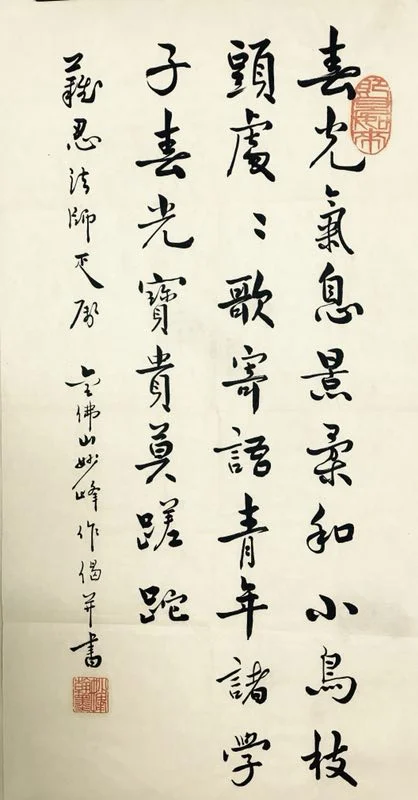 春光氣息景柔和小鳥枝
頭處〻歌寄語青年諸學
子春光寶貴莫蹉跎
藏忍法師疋屬 金佛山妙峰作偈并書